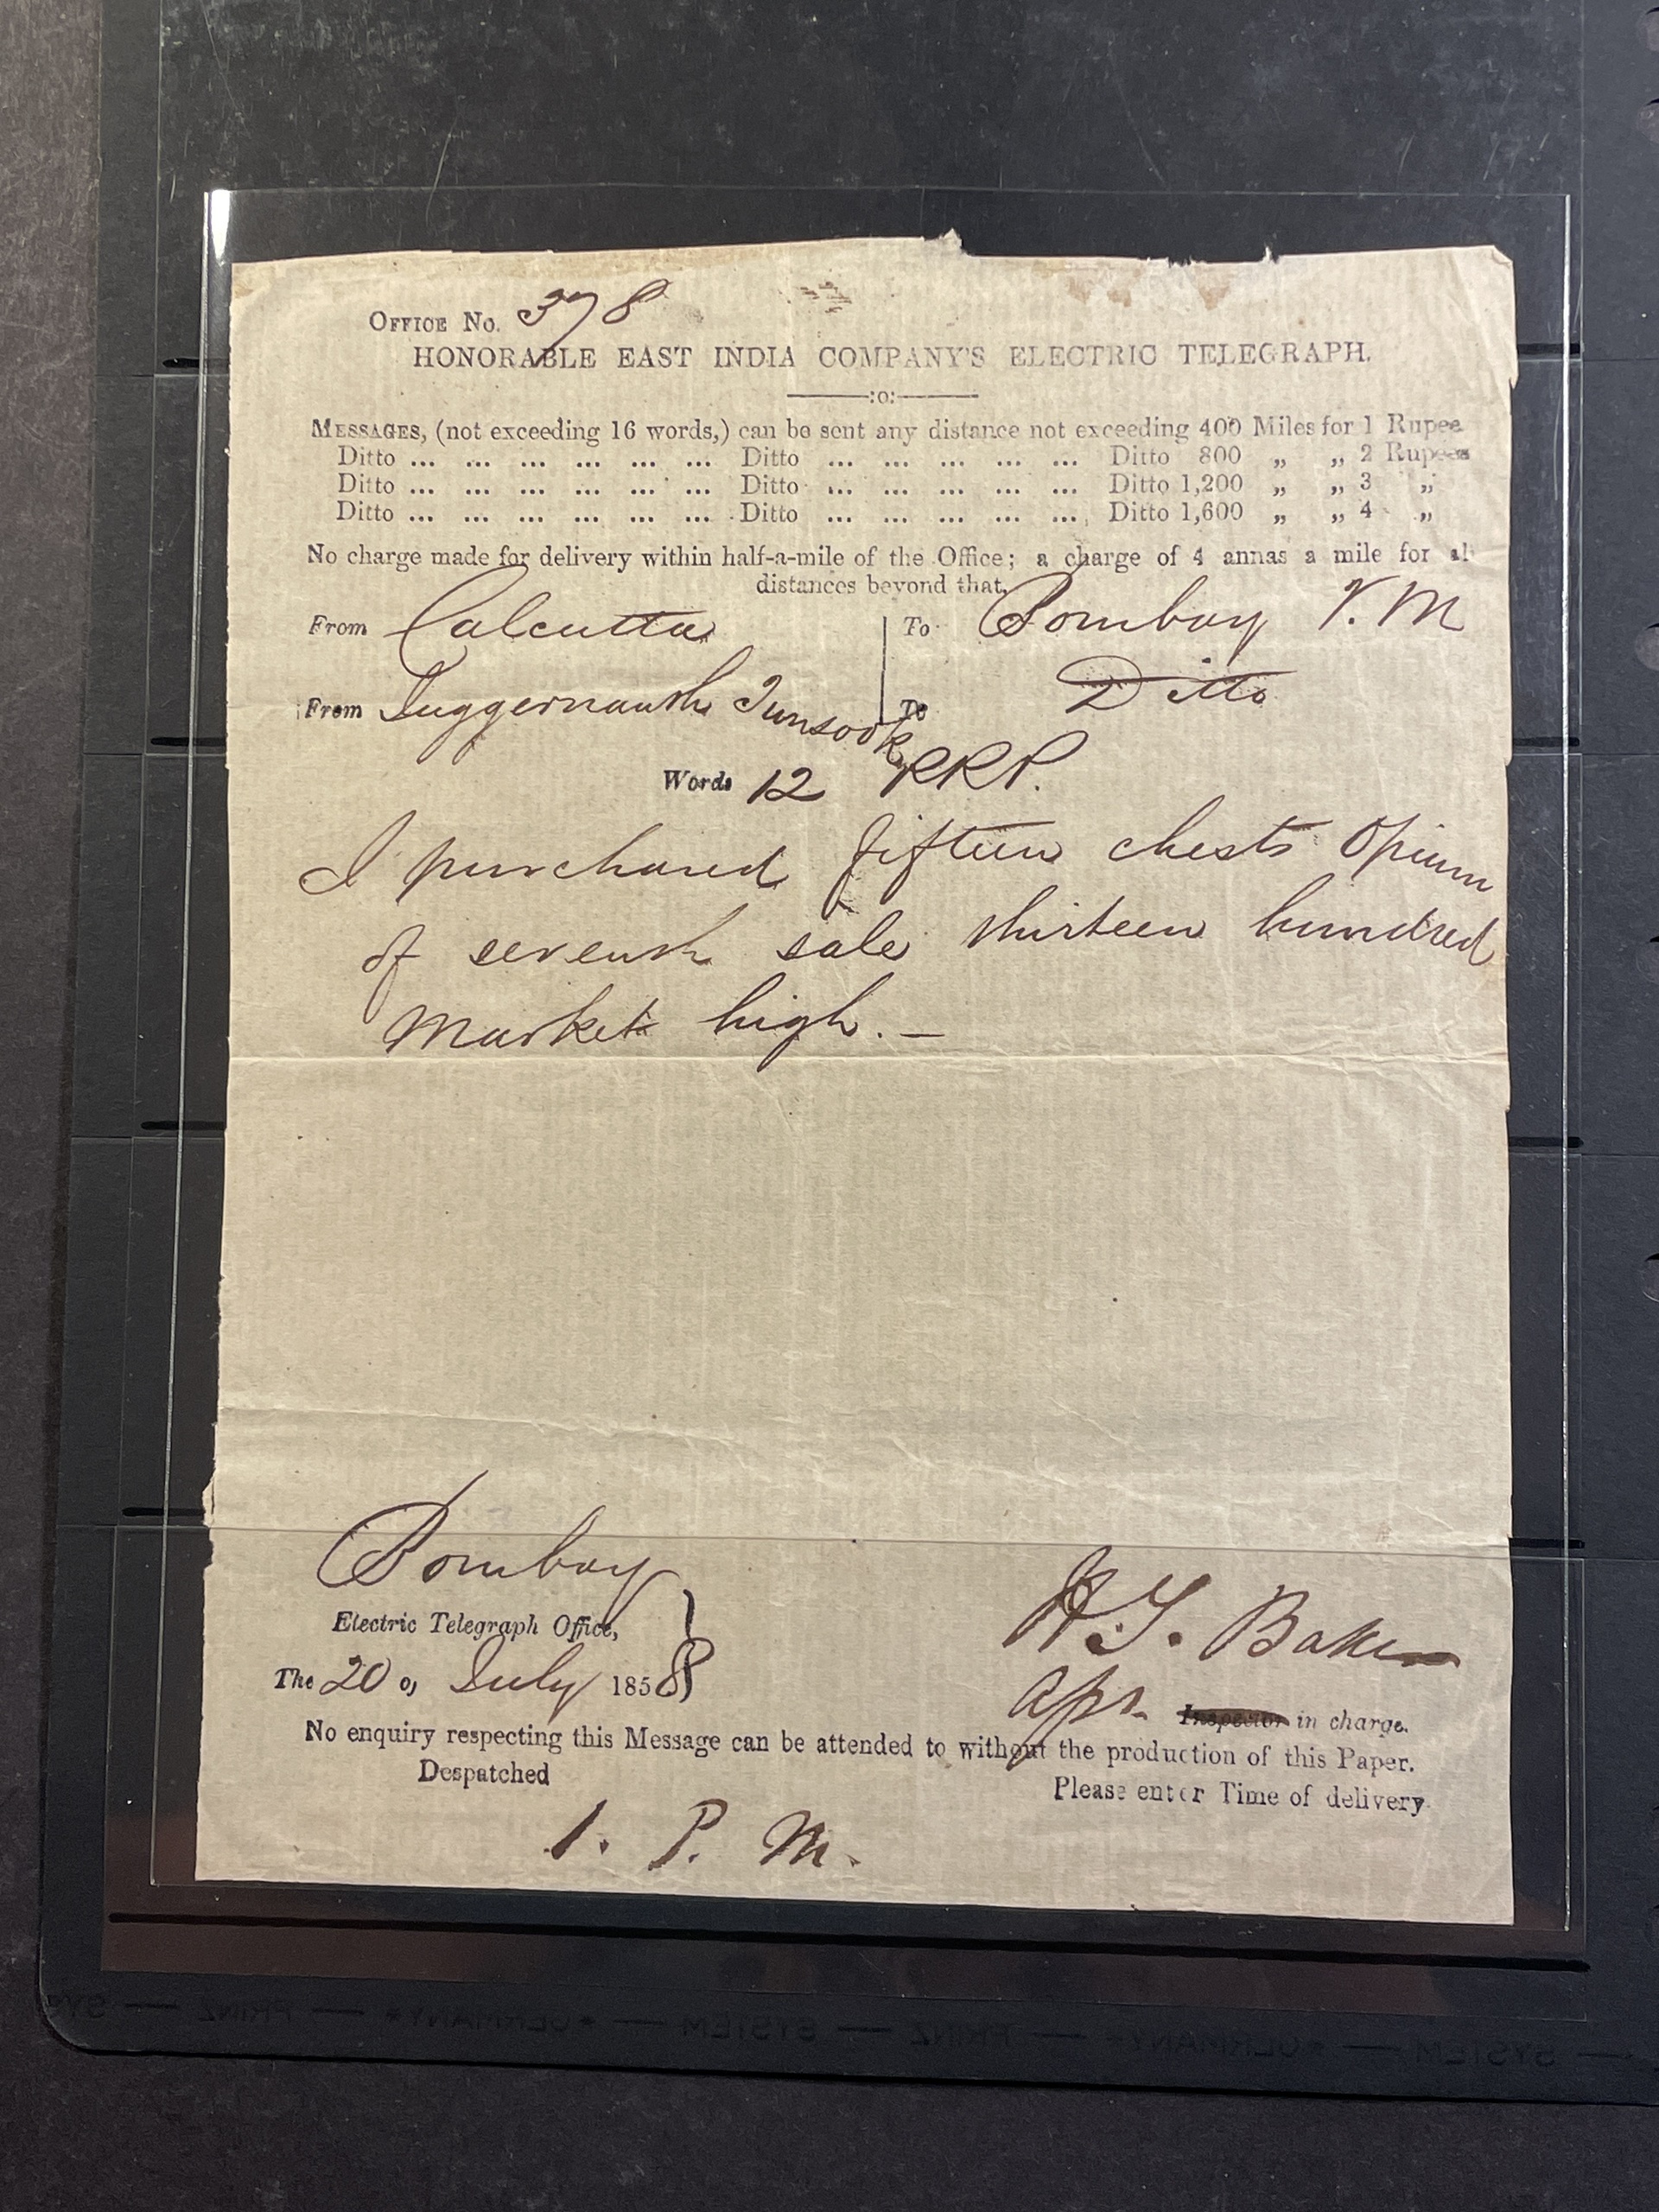 OFFICE No. 378
HONORABLE EAST INDIA COMPANY'S ELECTRIC TELEGRAPH.
:o:
MESSAGES, (not exceeding 16 words,) can be sent any distance not exceeding 400 Miles for 1 Rupee
Ditto ... ... ... ... ... ... Ditto ... ... ... ... ... Ditto 800 „ „ 2 Rupees
Ditto ... ... ... ... ... ... Ditto ... ... ... ... ... Ditto 1,200 „ „ 3 „
Ditto ... ... ... ... ... ... Ditto ... ... ... ... ... Ditto 1,600 „ „ 4 „
No charge made for delivery within half-a-mile of the Office; a charge of 4 annas a mile for al
distances beyond that.
From Calcutta To Bombay V. M
From Juggernauth Junsook To Ditto
Words 12 RRP.
I purchased fifteen chests Opium
of seventh sale thirteen hundred
Market high. —
Bombay
Electric Telegraph Office,
The 20 of July 1858
Baker
Inspector in charge.
No enquiry respecting this Message can be attended to without the production of this Paper.
Despatched
Please enter Time of delivery
1. P. M.
SYSTEM — PRINZ — GERMANY * — SYSTEM — PRINZ — GERMANY * — SYSTEM